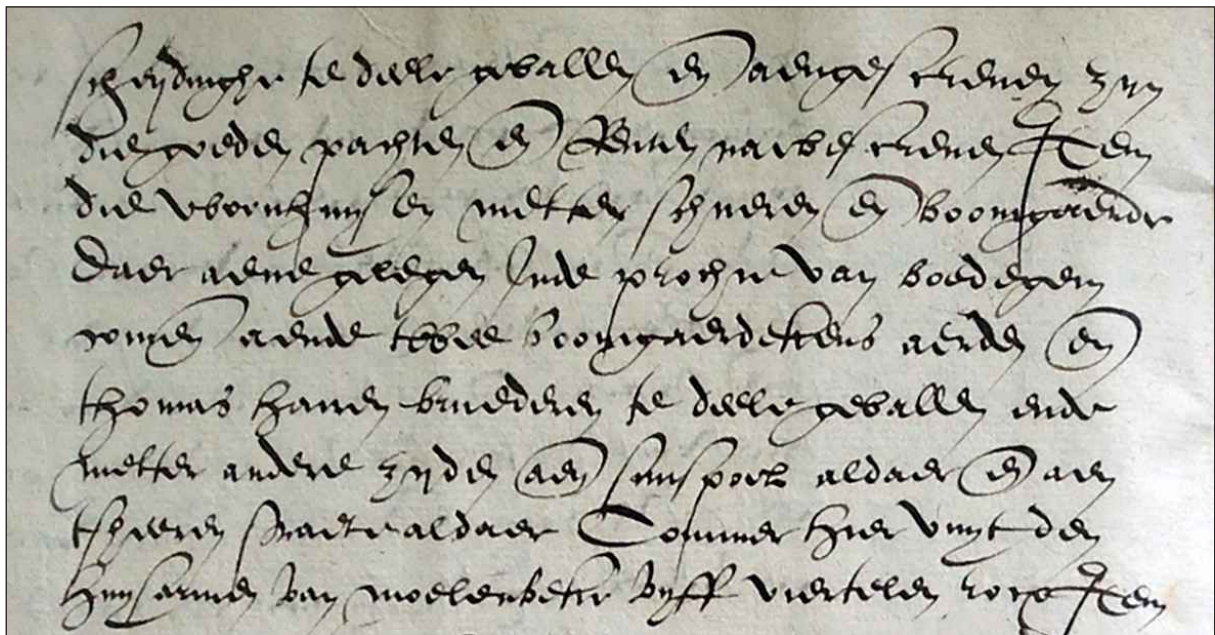 scheydinghe te deele gevallen en aengescreven zyn
die goeden pachten en Renten naebescreven Item
die woonhuysen metter schueren en boomgaerde
daer aene gelegen Inde prochie van boedegem
comen aende twee boomgaerdekens aerden en
thomas haren brueders te deele gevallen ende
metter andere zyden aen spoel aldaer en aen
tsheeren straete aldaer Commer hier vuyt den
huysarmen van moelenbeke vyff viertelen rocx Item